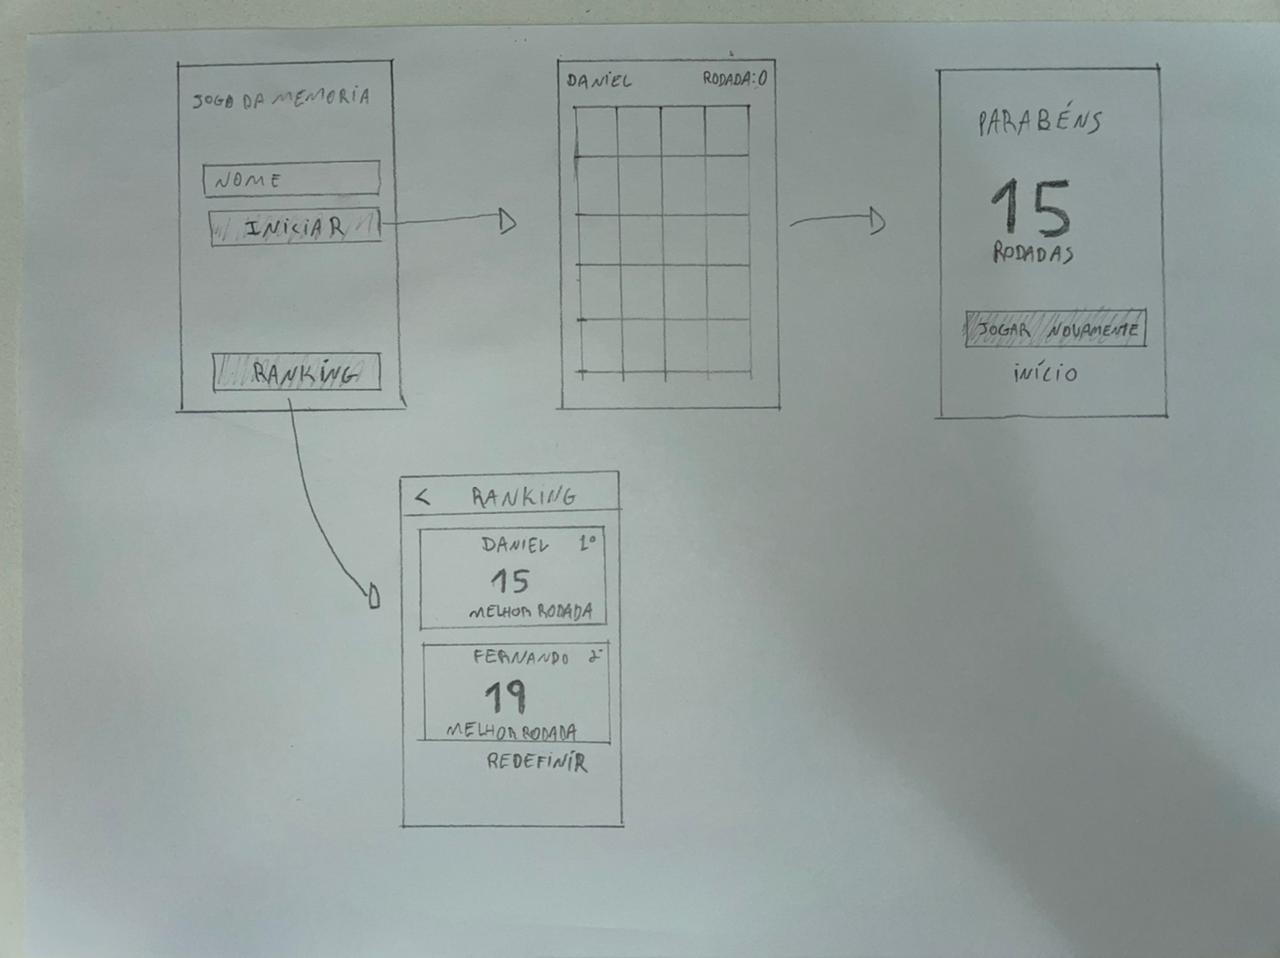 JOGO DA MEMORIA
NOME
INICIAR
RANKING
DANIEL RODADA:0
PARABÉNS
15
RODADAS
JOGAR NOVAMENTE
INÍCIO
< RANKING
DANIEL 1º
15
MELHOR RODADA
FERNANDO 2º
19
MELHOR RODADA
REDEFINIR